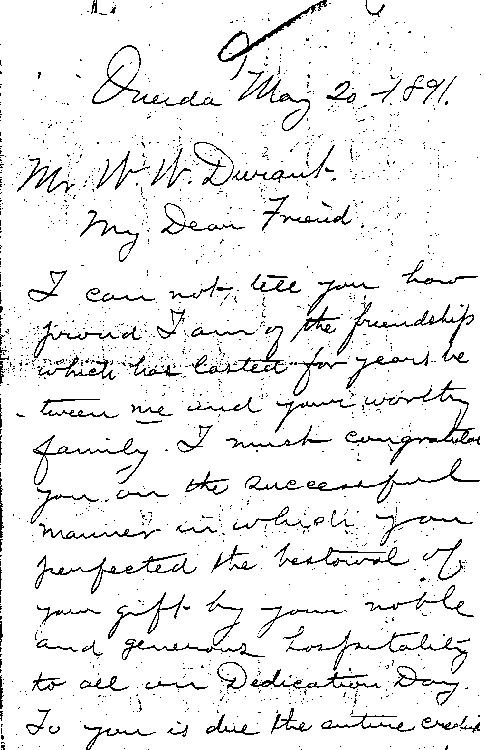 Oneida May 20 - 1891.
Mr W. W. Durant.
My Dear Friend.
I can not tell you how
proud I am of the friendship
which has lasted for years be
- tween me and your worthy
family. I must congratulate
you on the successful
manner in which you
perfected the bestowal of
your gift by your noble
and generous hospitality
to all on Dedication Day.
To you is due the entire credit